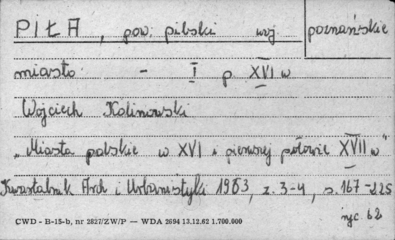 PIŁA, pow. pilski woj. poznańskie
miasto - I p XVI w
Wojciech Kalinowski
"Miasta polskie w XVI i pierwszej połowie XVII w"
Kwartalnik Arch i Urbanistyki 1963, z. 3-4, s. 167-225
CWD - B-15-b, nr 2827/ZW/P — WDA 2694 13.12.62 1.700.000
ryc 62